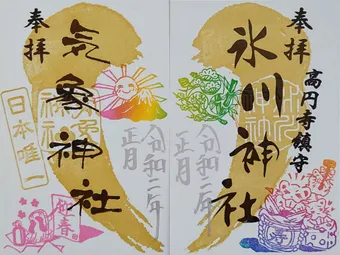 奉拝
高円寺鎮守
氷川神社
令和二年
正月
奉拝
気象神社
令和二年
正月
日本唯一